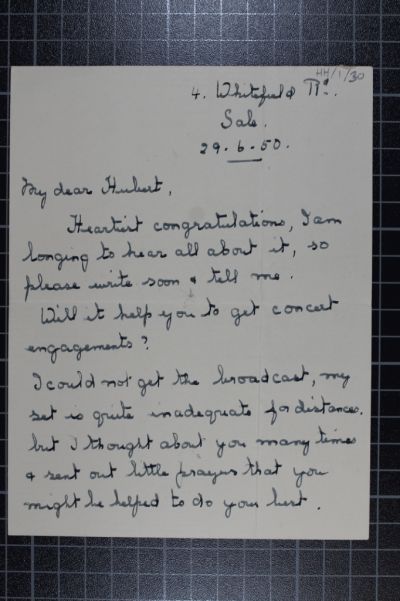 HH/1/30
4. Whitefield Rd.
Sale.
29.6.50.
My dear Hubert,
Heartiest congratulations, I am
longing to hear all about it, so
please write soon & tell me.
Will it help you to get concert
engagements?
I could not get the broadcast, my
set is quite inadequate for distances,
but I thought about you many times
& sent out little prayers that you
might be helped to do your best.